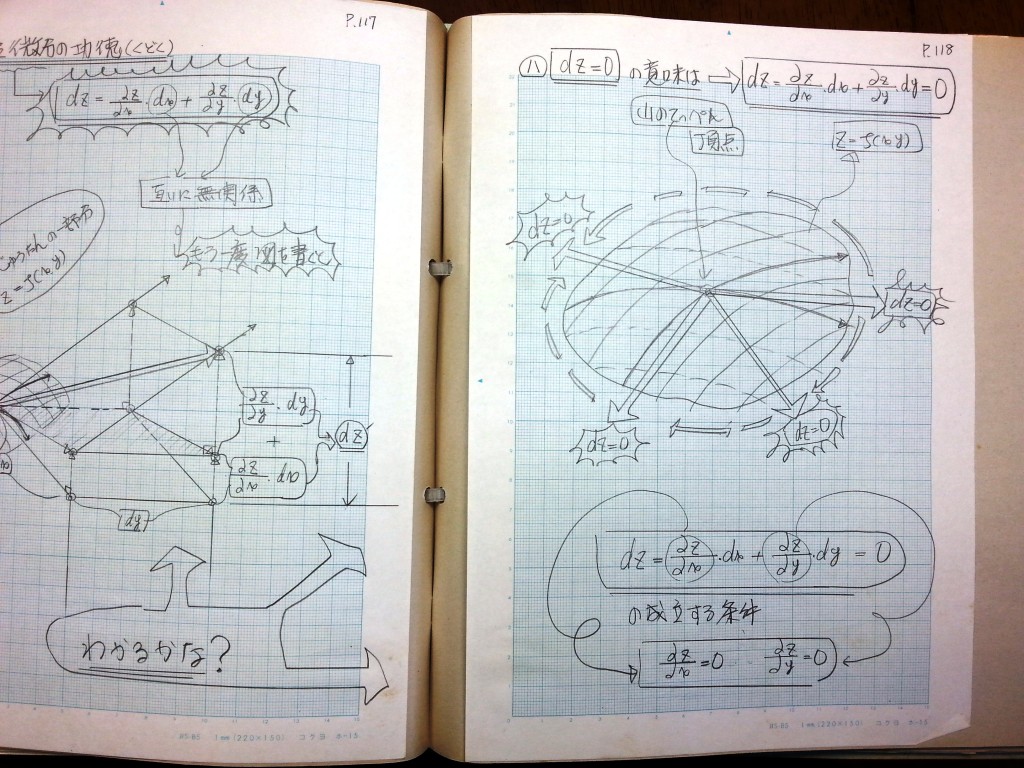 P.117
微分の功徳(くどく)
dz = ∂z/∂x・dx + ∂z/∂y・dy
互いに無関係
もう一度図を書くと
じゅうたんの一部分
z=f(x,y)
∂z/∂y・dy
+
∂z/∂x・dx
dz
dy
わかるかな?
RS-85 1mm(220×150) コクヨ ホ-15
P.118
(八) dz=0 の意味は ⇒ dz=∂z/∂x・dx+∂z/∂y・dy=0
山のてっぺん
頂点
z=f(x,y)
dz=0
dz=0
dz=0
dz=0
dz=∂z/∂x・dx+∂z/∂y・dy=0
の成立する条件
∂z/∂x=0 ∂z/∂y=0
RS-85 1mm(220×150) コクヨ ホ-15